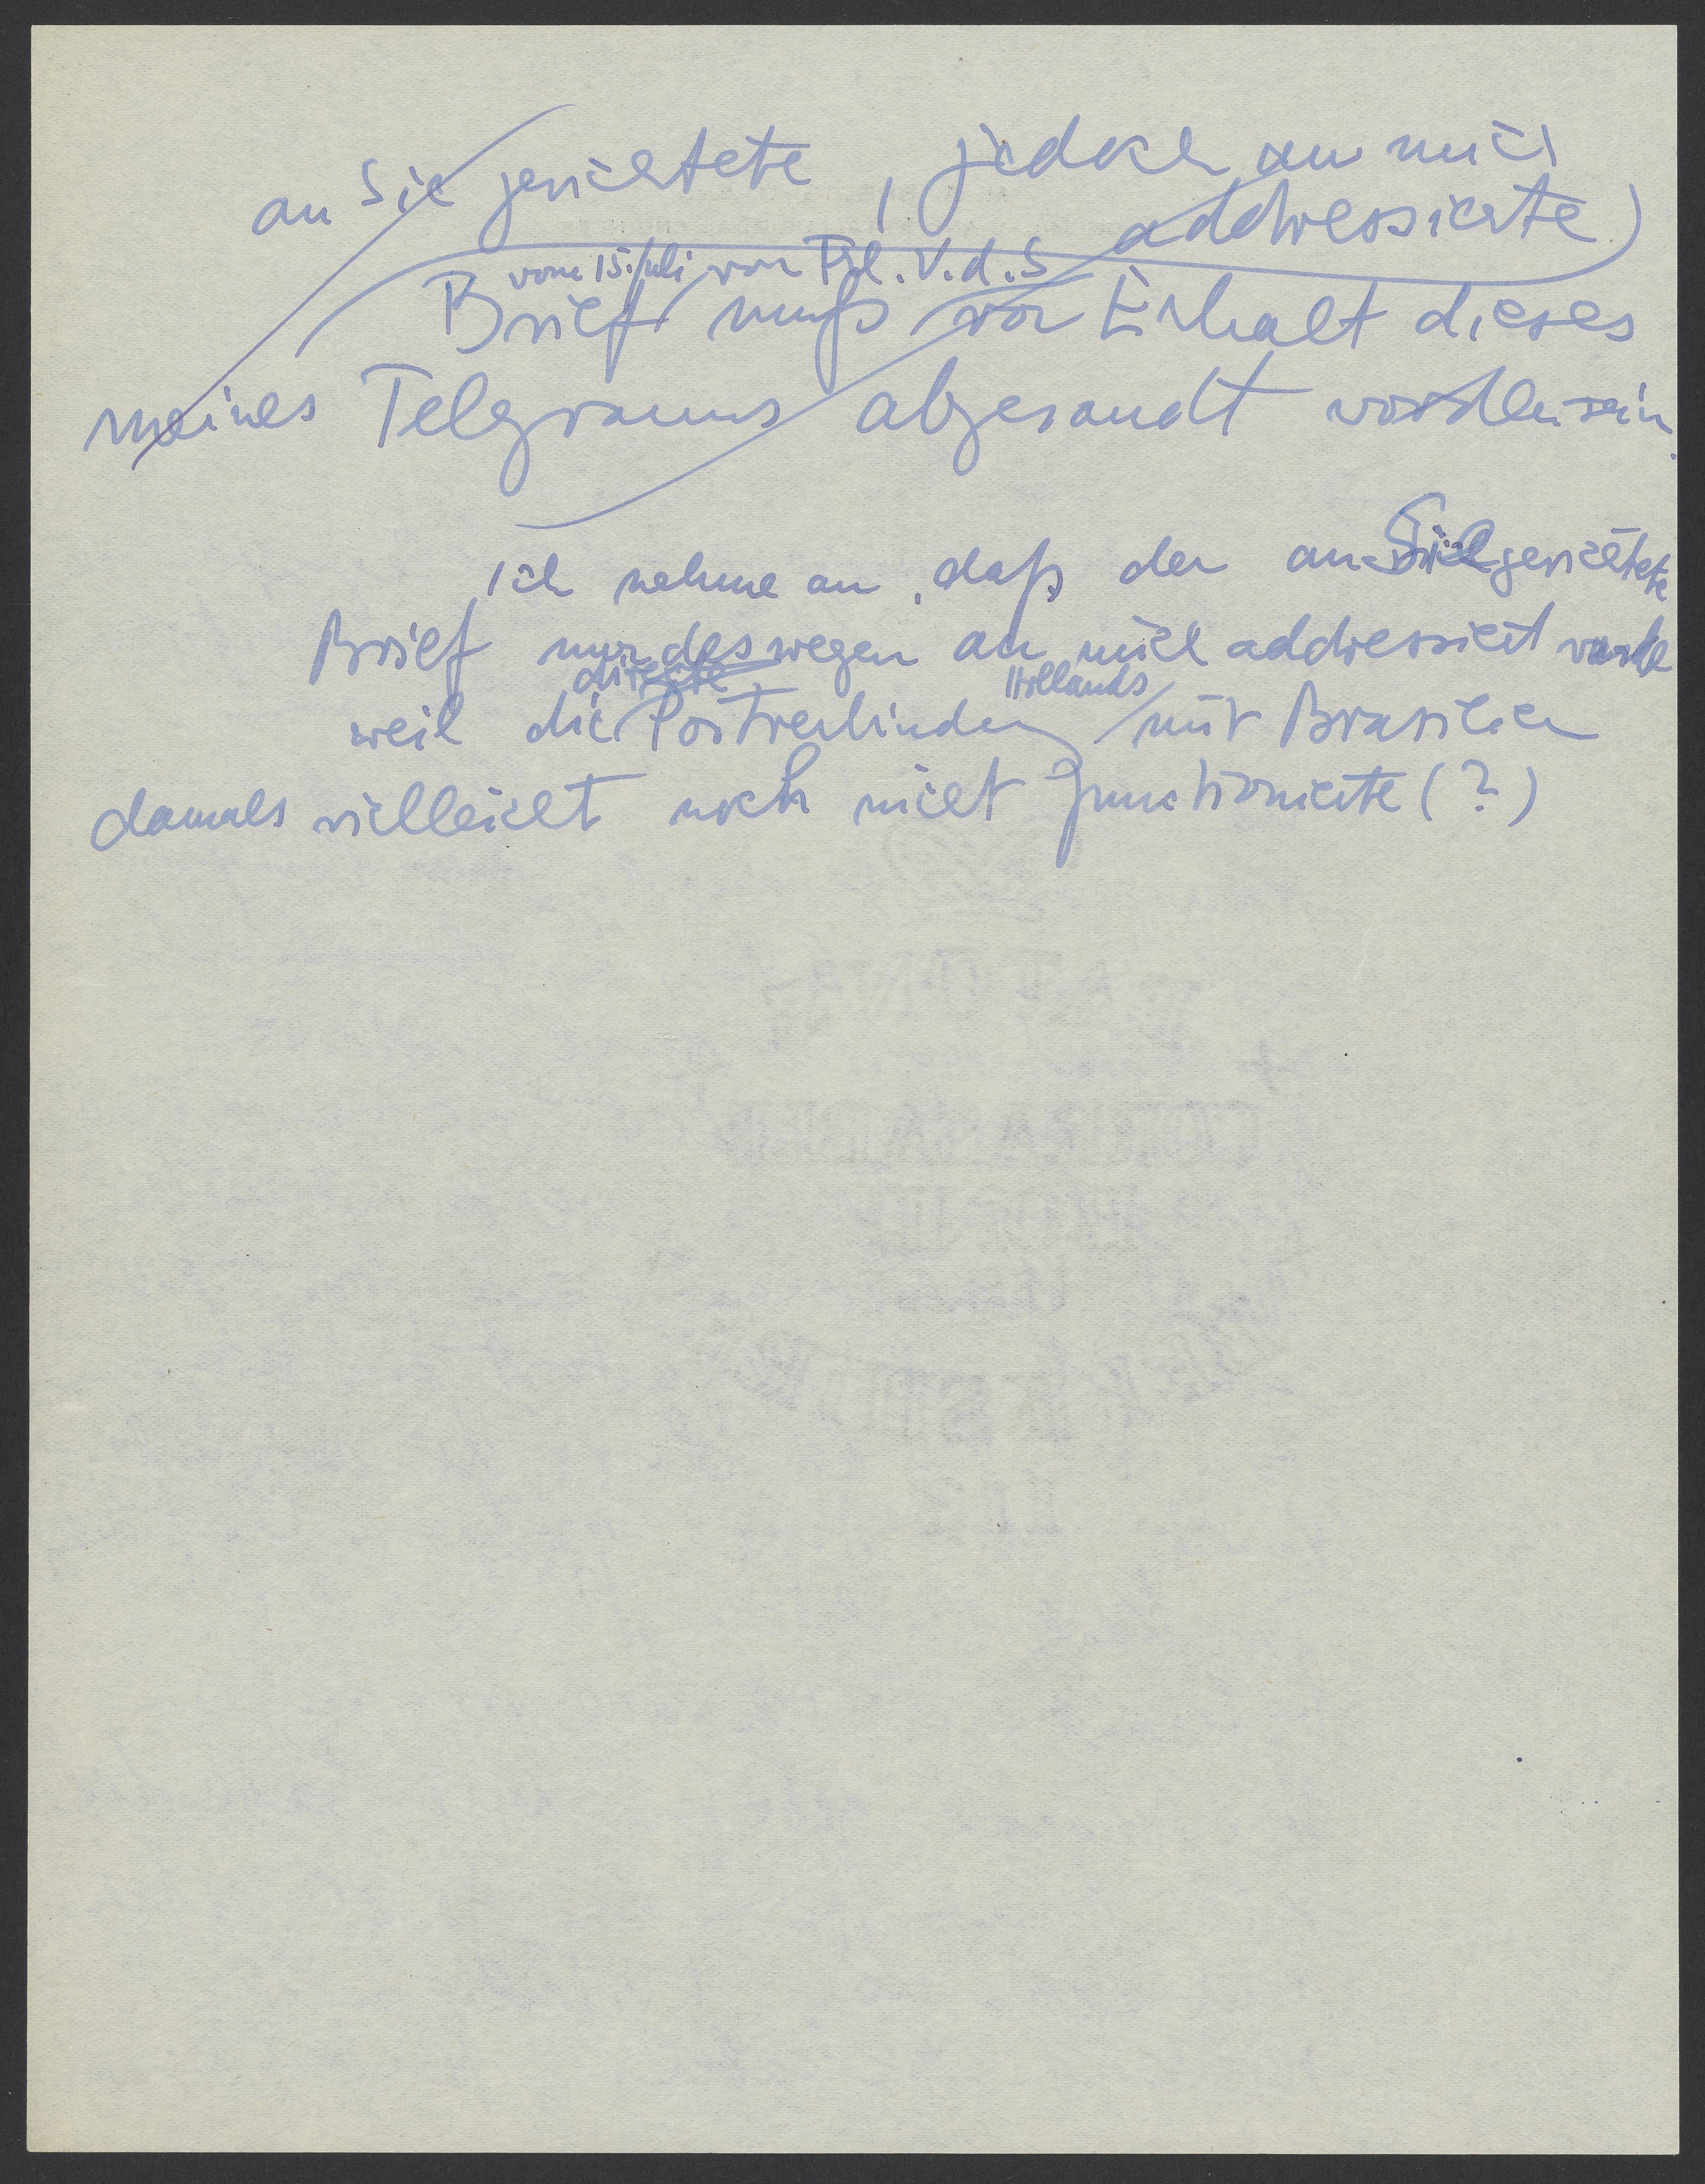 an Sie gerichtete, jedoch an mich
addressierte)
vom 15. Juli von Frl. V. d. S
Brief muß vor Erhalt dieses
meines Telegramms abgesandt worden sein.
Ich nehme an, daß der an Sie gerichtete
Brief nur deswegen an mich addressiert wurde
directe Hollands
weil die Postverbindung mit Brasilien
damals vielleicht noch nicht functionierte (?)